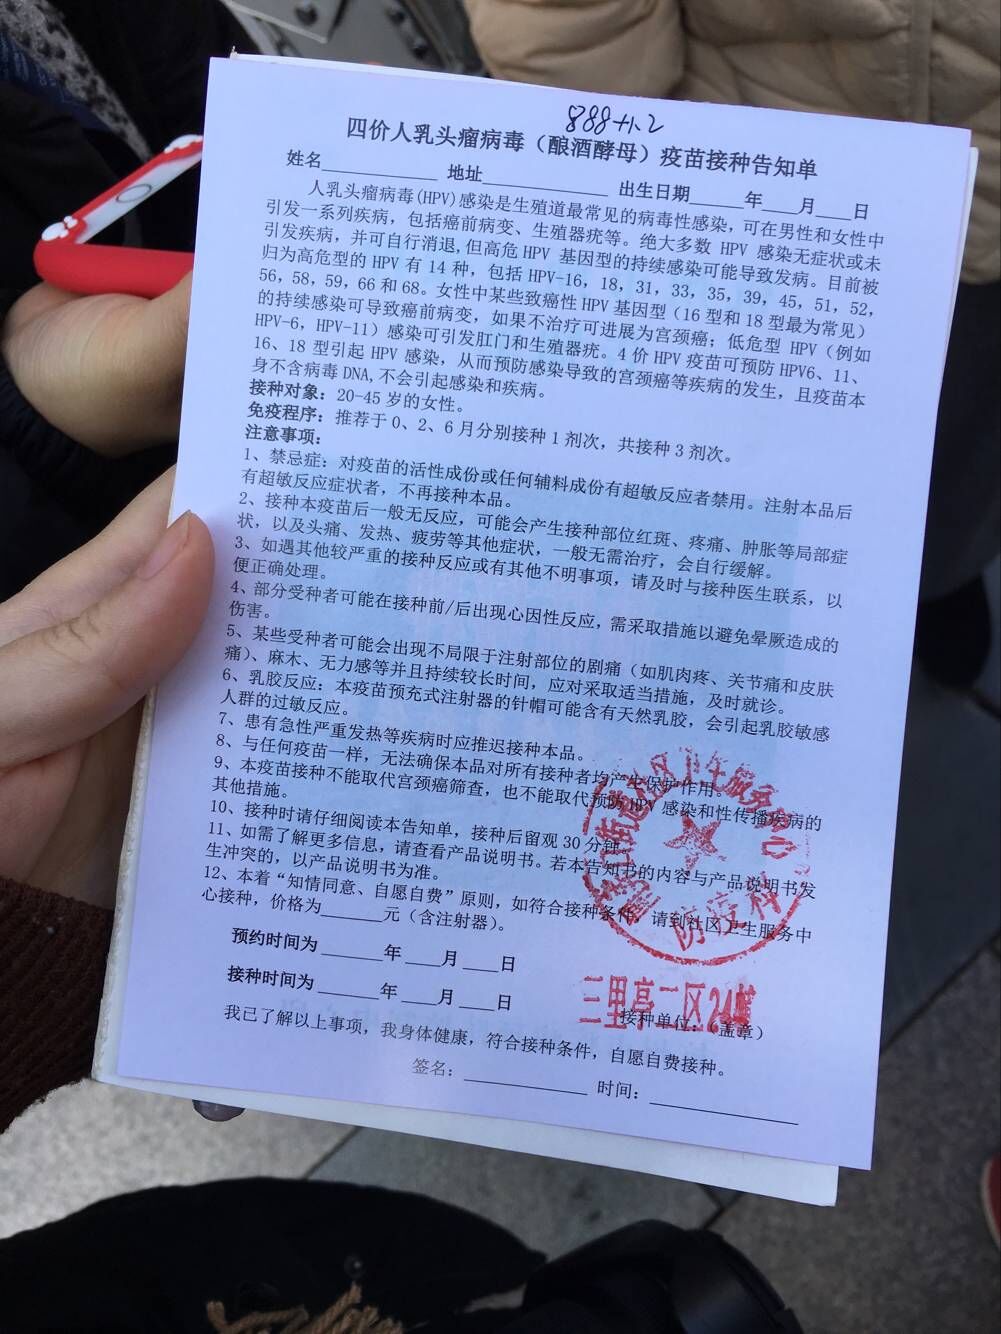 888+1.2
四价人乳头瘤病毒（酿酒酵母）疫苗接种告知单
姓名 地址 出生日期 年 月 日
人乳头瘤病毒(HPV)感染是生殖道最常见的病毒性感染，可在男性和女性中
引发一系列疾病，包括癌前病变、生殖器疣等。绝大多数 HPV 感染无症状或未
引发疾病，并可自行消退，但高危 HPV 基因型的持续感染可能导致发病。目前被
归为高危型的 HPV 有 14 种，包括 HPV-16，18，31，33，35，39，45，51，52，
56，58，59，66 和 68。女性中某些致癌性 HPV 基因型（16 型和 18 型最为常见）
的持续感染可导致癌前病变，如果不治疗可进展为宫颈癌；低危型 HPV（例如
HPV-6，HPV-11）感染可引发肛门和生殖器疣。4 价 HPV 疫苗可预防 HPV6、11、
16、18 型引起 HPV 感染，从而预防感染导致的宫颈癌等疾病的发生，且疫苗本
身不含病毒 DNA，不会引起感染和疾病。
接种对象：20-45 岁的女性。
免疫程序：推荐于 0、2、6 月分别接种 1 剂次，共接种 3 剂次。
注意事项：
1、禁忌症：对疫苗的活性成份或任何辅料成份有超敏反应者禁用。注射本品后
有超敏反应症状者，不再接种本品。
2、接种本疫苗后一般无反应，可能会产生接种部位红斑、疼痛、肿胀等局部症
状，以及头痛、发热、疲劳等其他症状，一般无需治疗，会自行缓解。
3、如遇其他较严重的接种反应或有其他不明事项，请及时与接种医生联系，以
便正确处理。
4、部分受种者可能在接种前/后出现心因性反应，需采取措施以避免晕厥造成的
伤害。
5、某些受种者可能会出现不局限于注射部位的剧痛（如肌肉疼、关节痛和皮肤
痛）、麻木、无力感等并且持续较长时间，应对采取适当措施，及时就诊。
6、乳胶反应：本疫苗预充式注射器的针帽可能含有天然乳胶，会引起乳胶敏感
人群的过敏反应。
7、患有急性严重发热等疾病时应推迟接种本品。
8、与任何疫苗一样，无法确保本品对所有接种者均产生保护作用。
9、本疫苗接种不能取代宫颈癌筛查，也不能取代预防 HPV 感染和性传播疾病的
其他措施。
10、接种时请仔细阅读本告知单，接种后留观 30 分钟。
11、如需了解更多信息，请查看产品说明书。若本告知书的内容与产品说明书发
生冲突的，以产品说明书为准。
12、本着“知情同意、自愿自费”原则，如符合接种条件，请到社区卫生服务中
心接种，价格为 元（含注射器）。
预约时间为 年 月 日
接种时间为 年 月 日
街道社区卫生服务中心
防疫科
三里亭二区24幢
接种单位：（盖章）
我已了解以上事项，我身体健康，符合接种条件，自愿自费接种。
签名： 时间：